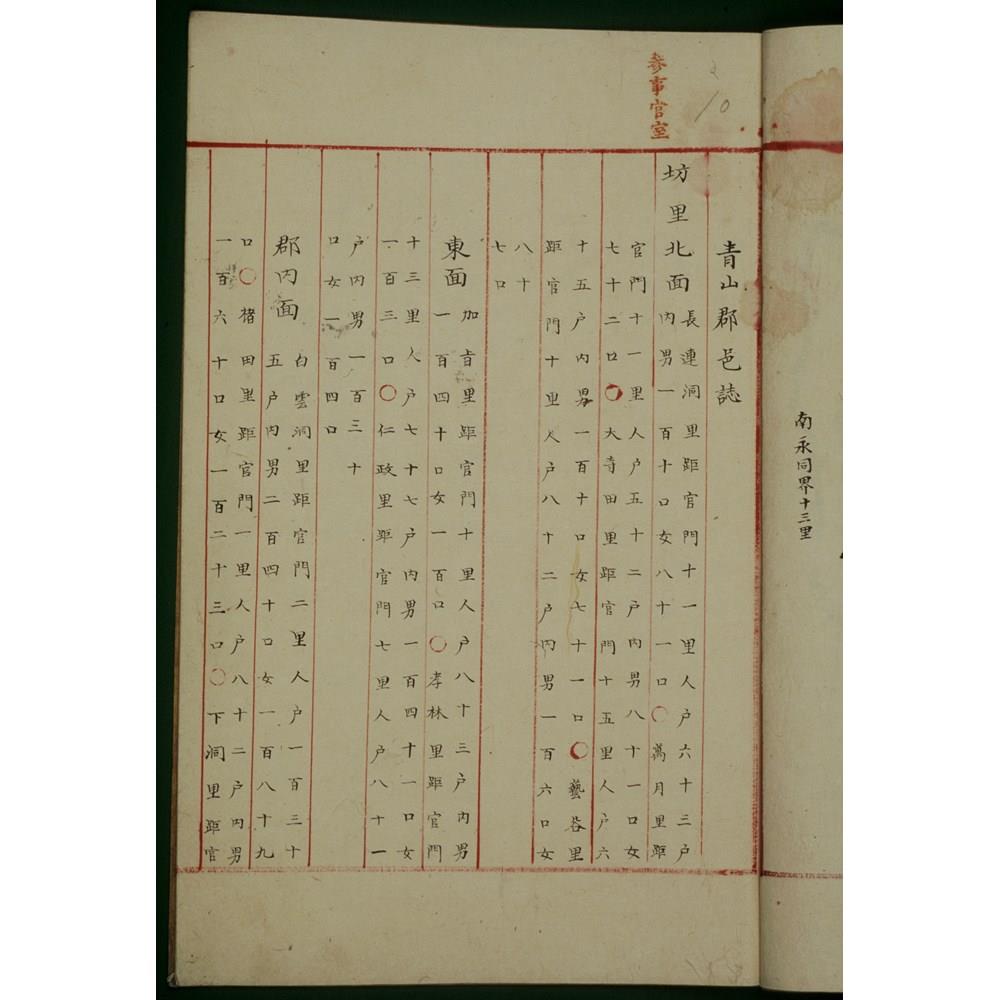 南永同界十三里
叅事官室
10
青山郡邑誌
坊里北面長連洞里距官門十一里人户六十三户
內男一百十口女八十一口○萬月里距
官門十一里人户五十二户內男八十一口女
七十二口○大寺田里距官門十五里人户六
十五户內男一百十口女七十一口○藝谷里
距官門十里人户八十二户內男一百六口女
八十
七口
東面加旨里距官門十里人户八十三户內男
一百四十口女一百口○孝林里距官門
十三里人户七十七户內男一百四十一口女
一百三口○仁政里距官門七里人户八十一
户內男一百三十
口女一百四口
郡內面白雲洞里距官門二里人户一百三十
五户內男二百四十口女一百八十九
口○楮田里距官門一里人户八十二户內男
一百六十口女一百二十三口○下洞里距官